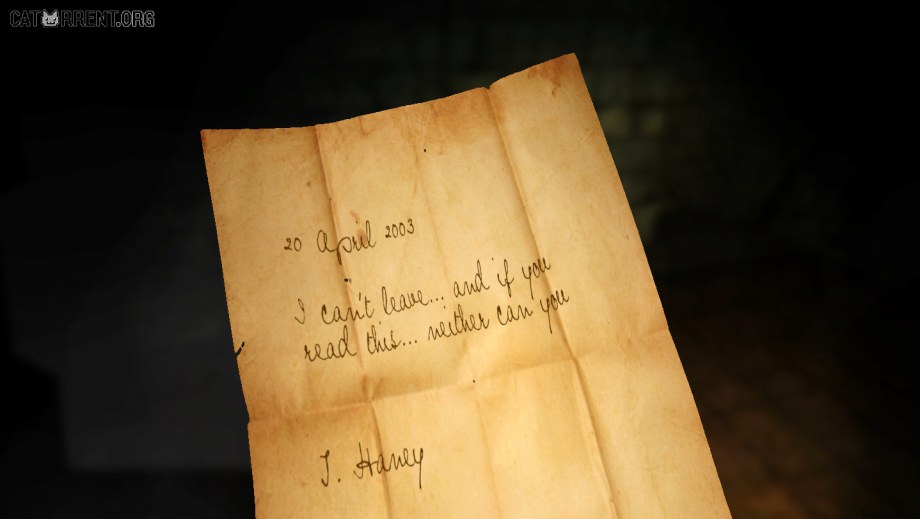 CATORRENT.ORG
20 April 2003
I can't leave... and if you
read this... neither can you
J. Haney